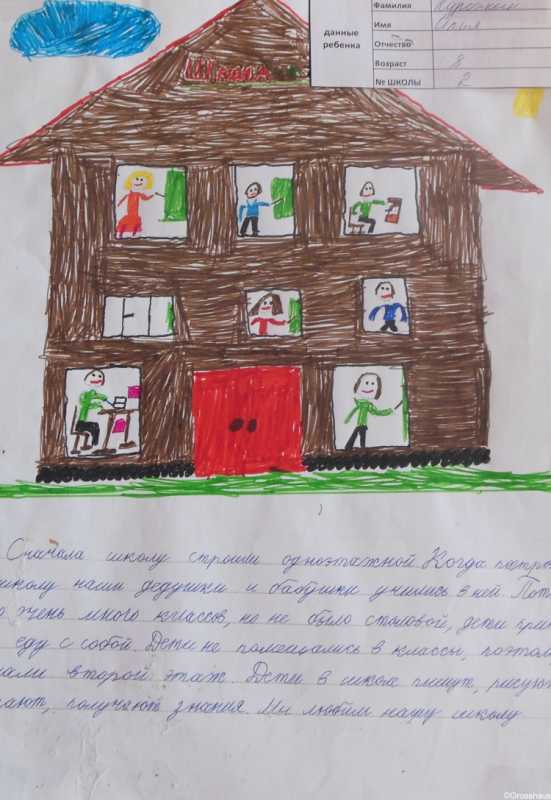 Фамилия
данные ребенка
Имя
Отчество
Возраст 8
№ ШКОЛЫ 2
Школа
Сначала школу строили одноэтажной. Когда
школу наши дедушки и бабушки учились в ней.
очень много классов, но не было столовой, дети
еду с собой. Дети не помещались в классы,
второй этаж. Дети в школе пишут,
получают знания. Мы любим нашу школу.
©Drosshaus